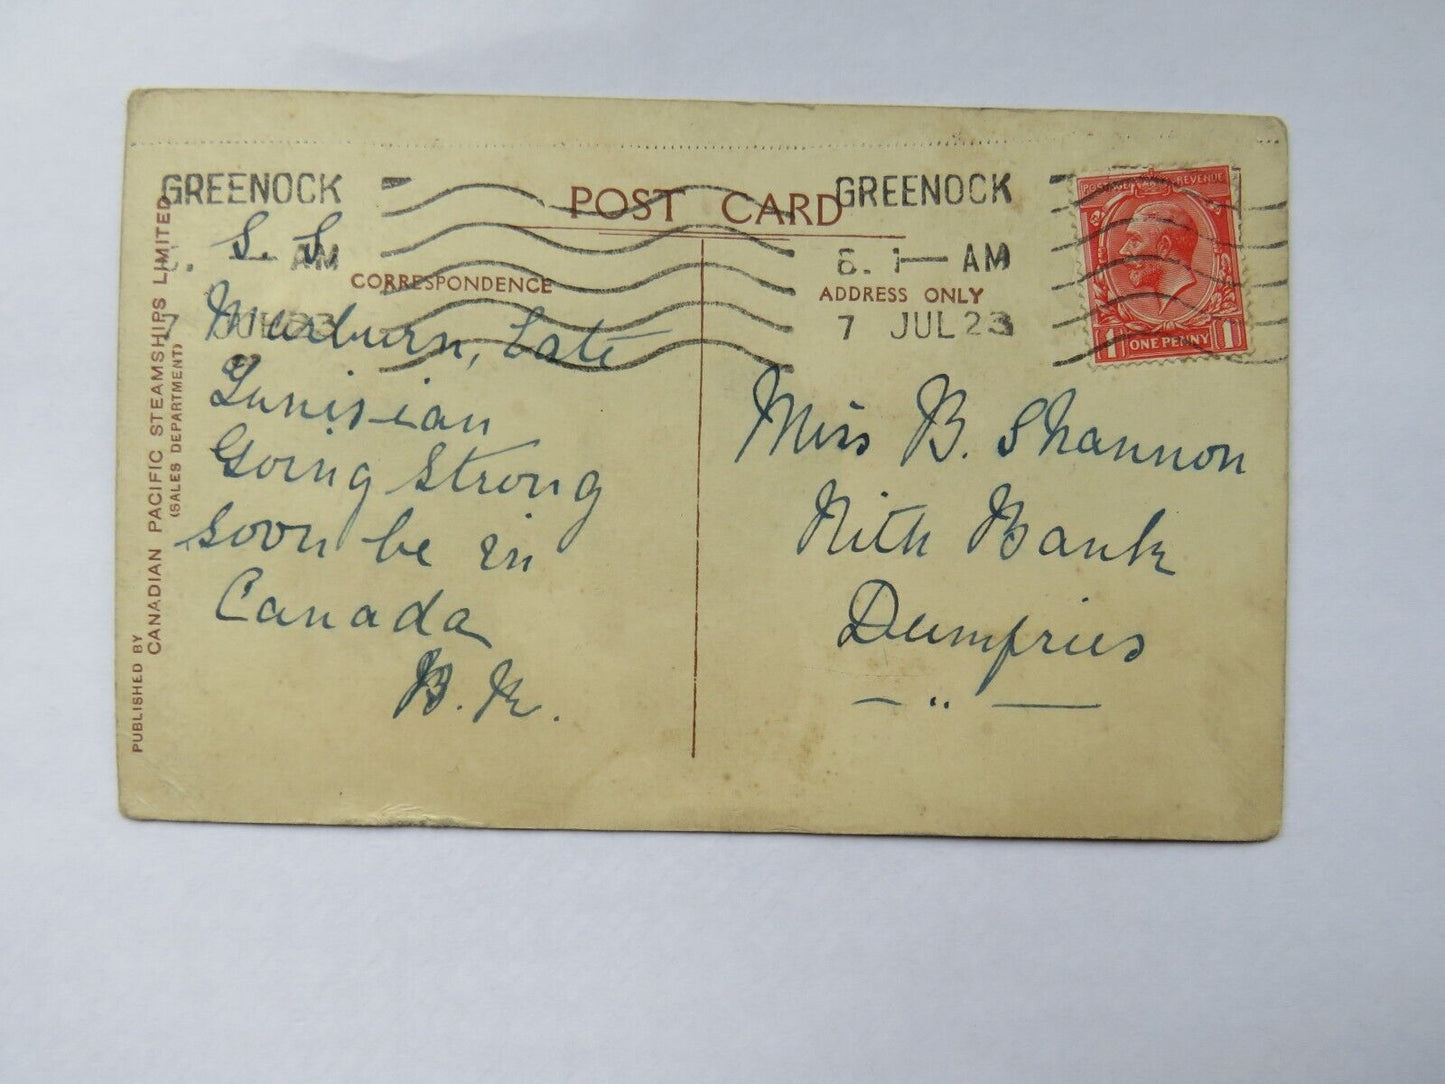 GREENOCK
POST CARD
GREENOCK
AM
6. 1— AM
7 JUL 23
7 JUL 23
CORRESPONDENCE
ADDRESS ONLY
POSTAGE REVENUE
1 ONE PENNY 1
PUBLISHED BY
CANADIAN PACIFIC STEAMSHIPS LIMITED
(SALES DEPARTMENT)
S. S
Marburn, Late
Tunisian
Going Strong
soon be in
Canada
B. K.
Miss B. Shannon
Nith Bank
Dumfries